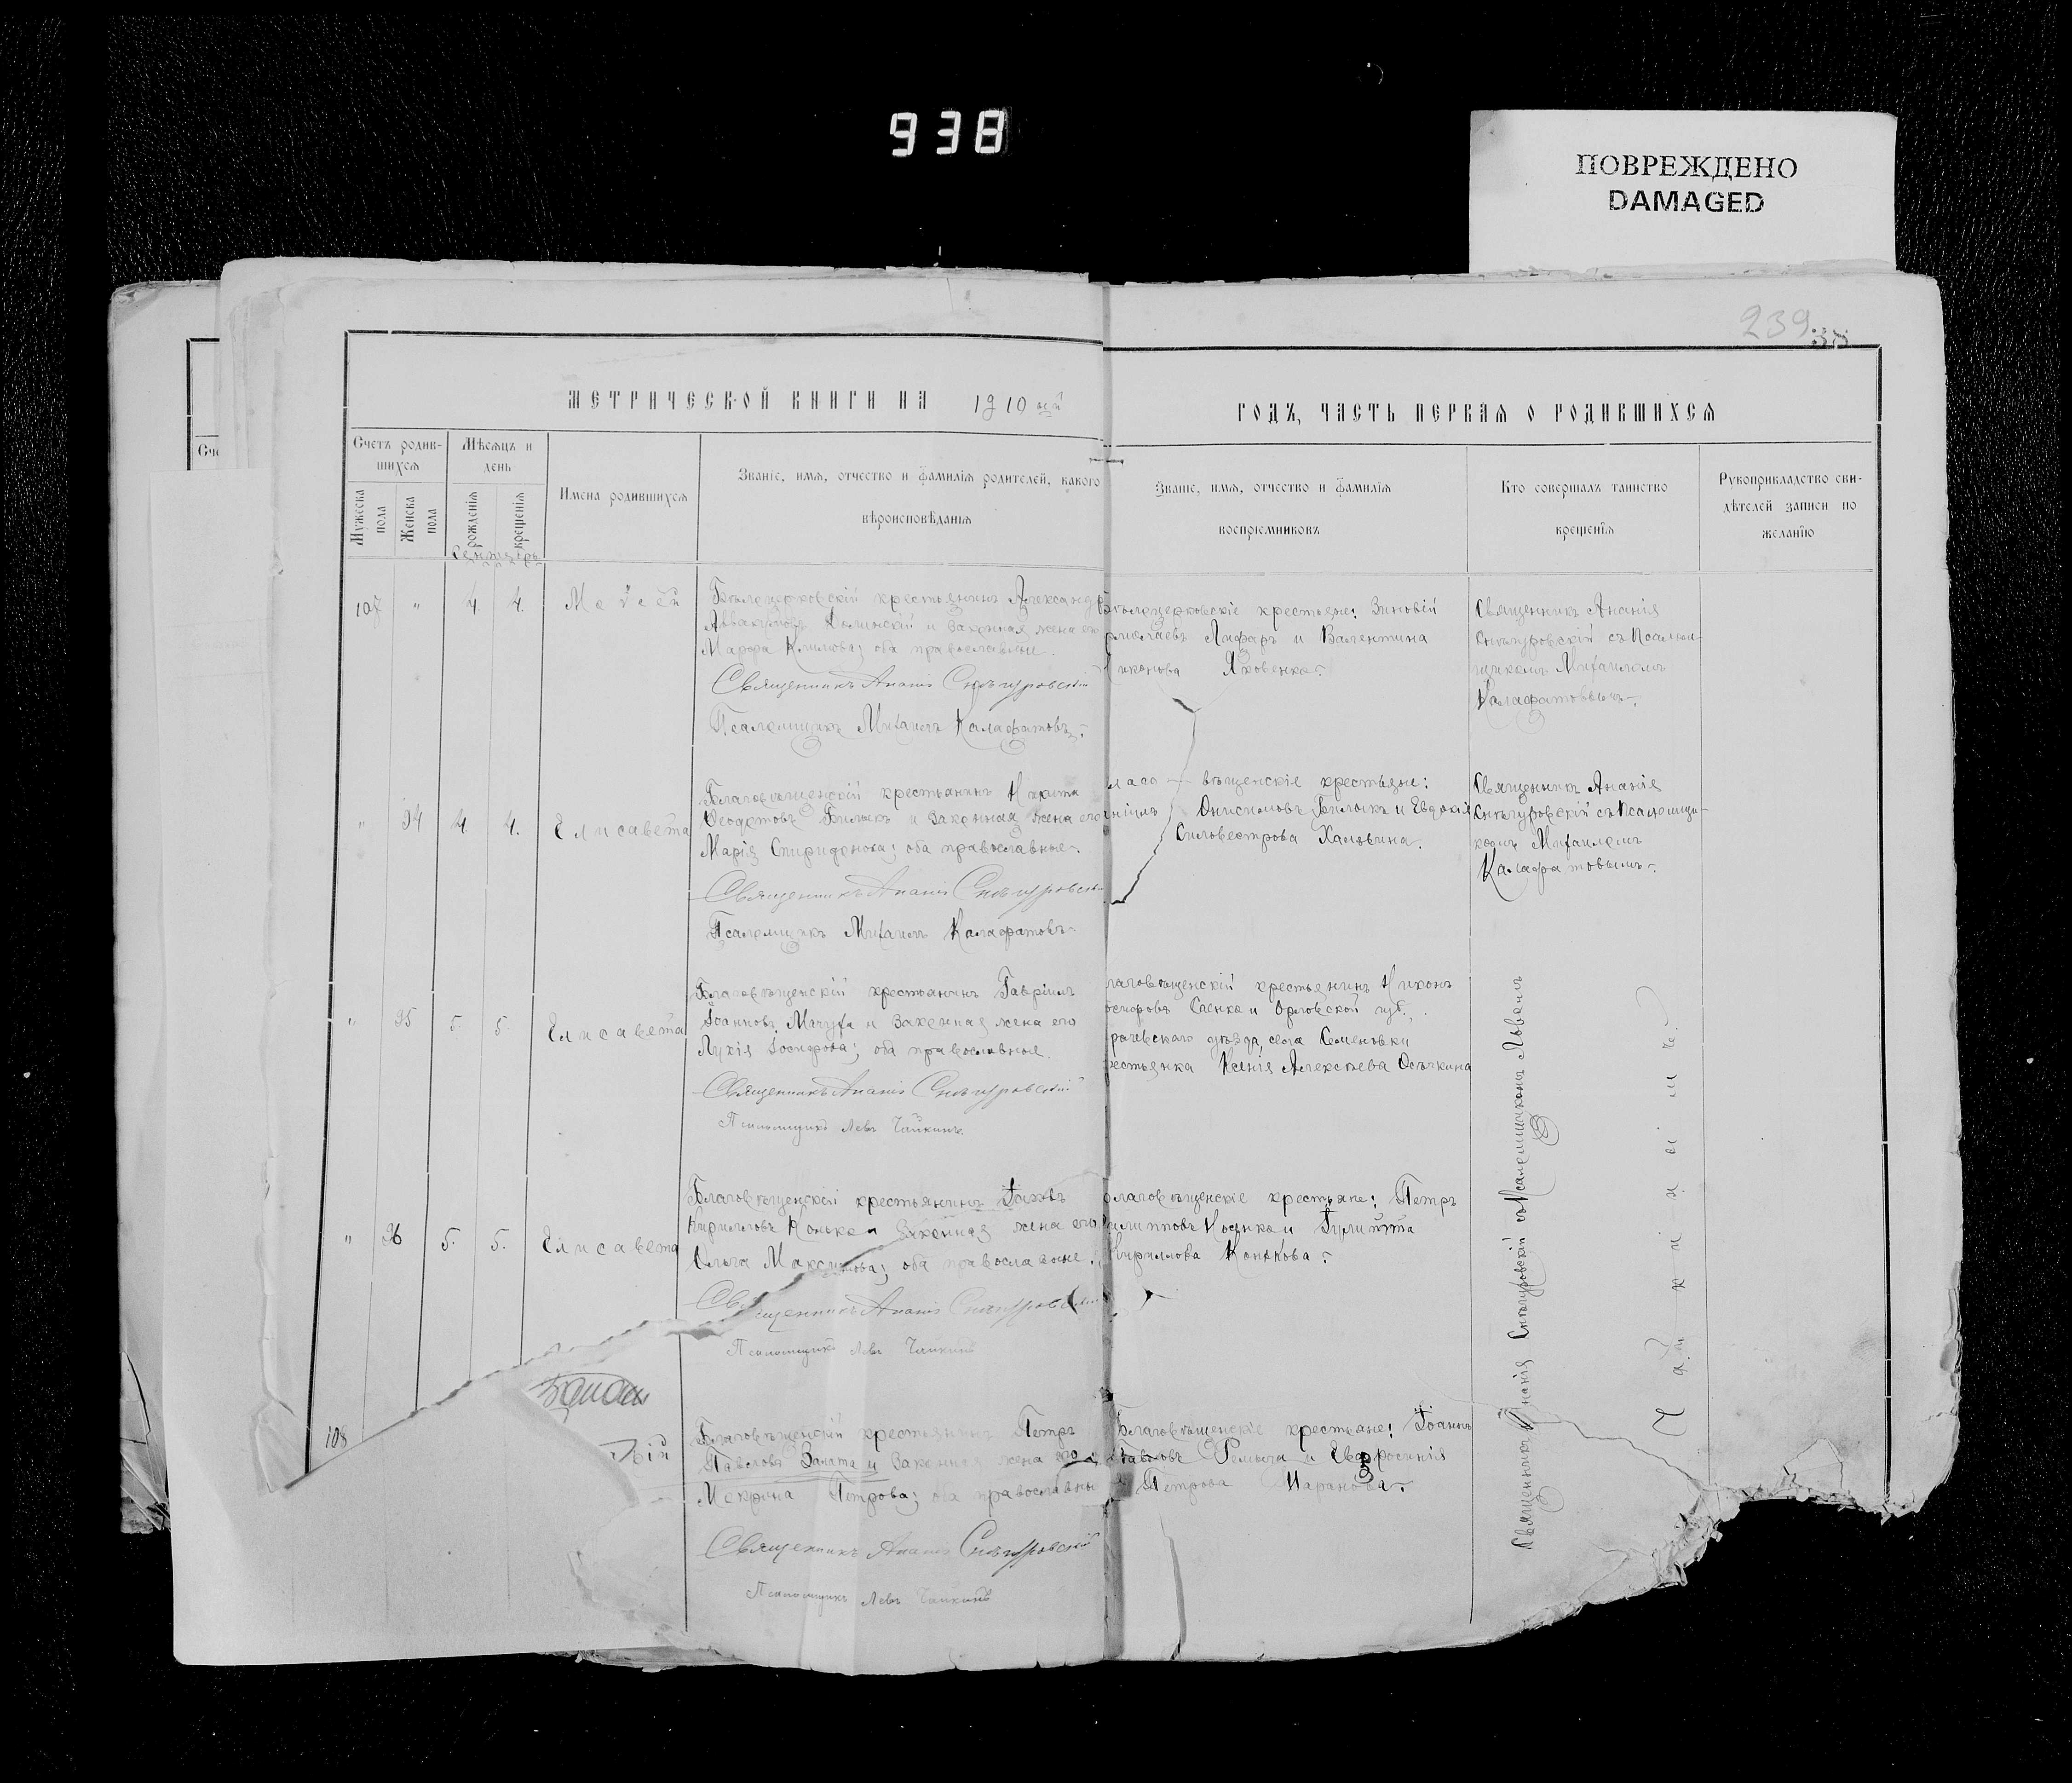 938
ПОВРЕЖДЕНО
DAMAGED
239
МЕТРИЧЕСКОЙ КНИГИ НА 1910 ый
ГОДЪ, ЧАСТЬ ПЕРВАЯ О РОДИВШИХСЯ
Счетъ родив-
шихся
Мужеска пола
Женска пола
Мѣсяцъ и
день
рожденія
крещенія
Имена родившихся
Званіе, имя, отчество и фамилія родителей, какого
вѣроисповѣданія
Званіе, имя, отчество и фамилія
воспріемниковъ
Кто совершалъ таинство
крещенія
Рукоприкладство сви-
дѣтелей записи по
желанію
Сентябрь
107 " 4. 4. Моѵсей
Бѣлецерковскій крестьянинъ Александръ
и законная жена его
Марфа Климова; оба православные.
Священникъ Ананія Снѣгуровскій
Псаломщикъ Михаилъ Калафатовъ.
Бѣлецерковскіе крестьяне: Зиновій
Лифарь и Валентина
Никонова Яковенко.
Священникъ Ананія
Снѣгуровскій съ Псалом-
щикомъ Михаиломъ
Калафатовымъ.
" 94 4. 4. Елисавета
Благовѣщенскій крестьянинъ Никита
Ѳеодотовъ Билыкъ и законная жена его
Марія Спиридонова; оба православные.
Священникъ Ананія Снѣгуровскій
Псаломщикъ Михаилъ Калафатовъ
вѣщенскіе крестьяне:
Онисимовъ Билыкъ и Евдокія
Силовестрова Халявина.
Священникъ Ананія
Снѣгуровскій съ Псаломщи-
комъ Михаиломъ
Калафатовымъ.
" 95 5. 5. Елисавета
Благовѣщенскій крестьянинъ Гавріилъ
Іоанновъ Мачуха и законная жена его
Лукія Іосифова; оба православные.
Священникъ Ананія Снѣгуровскій
Псаломщикъ Левъ Чайкинъ.
лаговѣщенскій крестьянинъ Никонъ
осифовъ Сленко и Орловской губ.,
рачевскаго уѣзда, села Семеновки
рестьянка Ксенія Алексѣева Осичкина
" 96 5. 5. Елисавета
Благовѣщенскій крестьянинъ Іаковъ
Кирилловъ Конько и законная жена его
Ольга Максимова; оба православные.
Священникъ Ананія Снѣгуровскій
Псаломщикъ Левъ Чайкинъ
Благовѣщенскіе крестьяне: Петръ
Филипповъ Косенко и Іулитта
Кириллова Конькова.
108
Благовѣщенскій крестьянинъ Петръ
Павловъ Заята и законная жена его
Мокрина Петрова; оба православны
Священникъ Ананія Снѣгуровскій
Псаломщикъ Левъ Чайкинъ
Благовѣщенскіе крестьяне: Іоаннъ
Павловъ и Евфросинія
Петрова
Священникъ Ананія Снѣгуровскій съ Псаломщикомъ Львомъ
Чайкинымъ